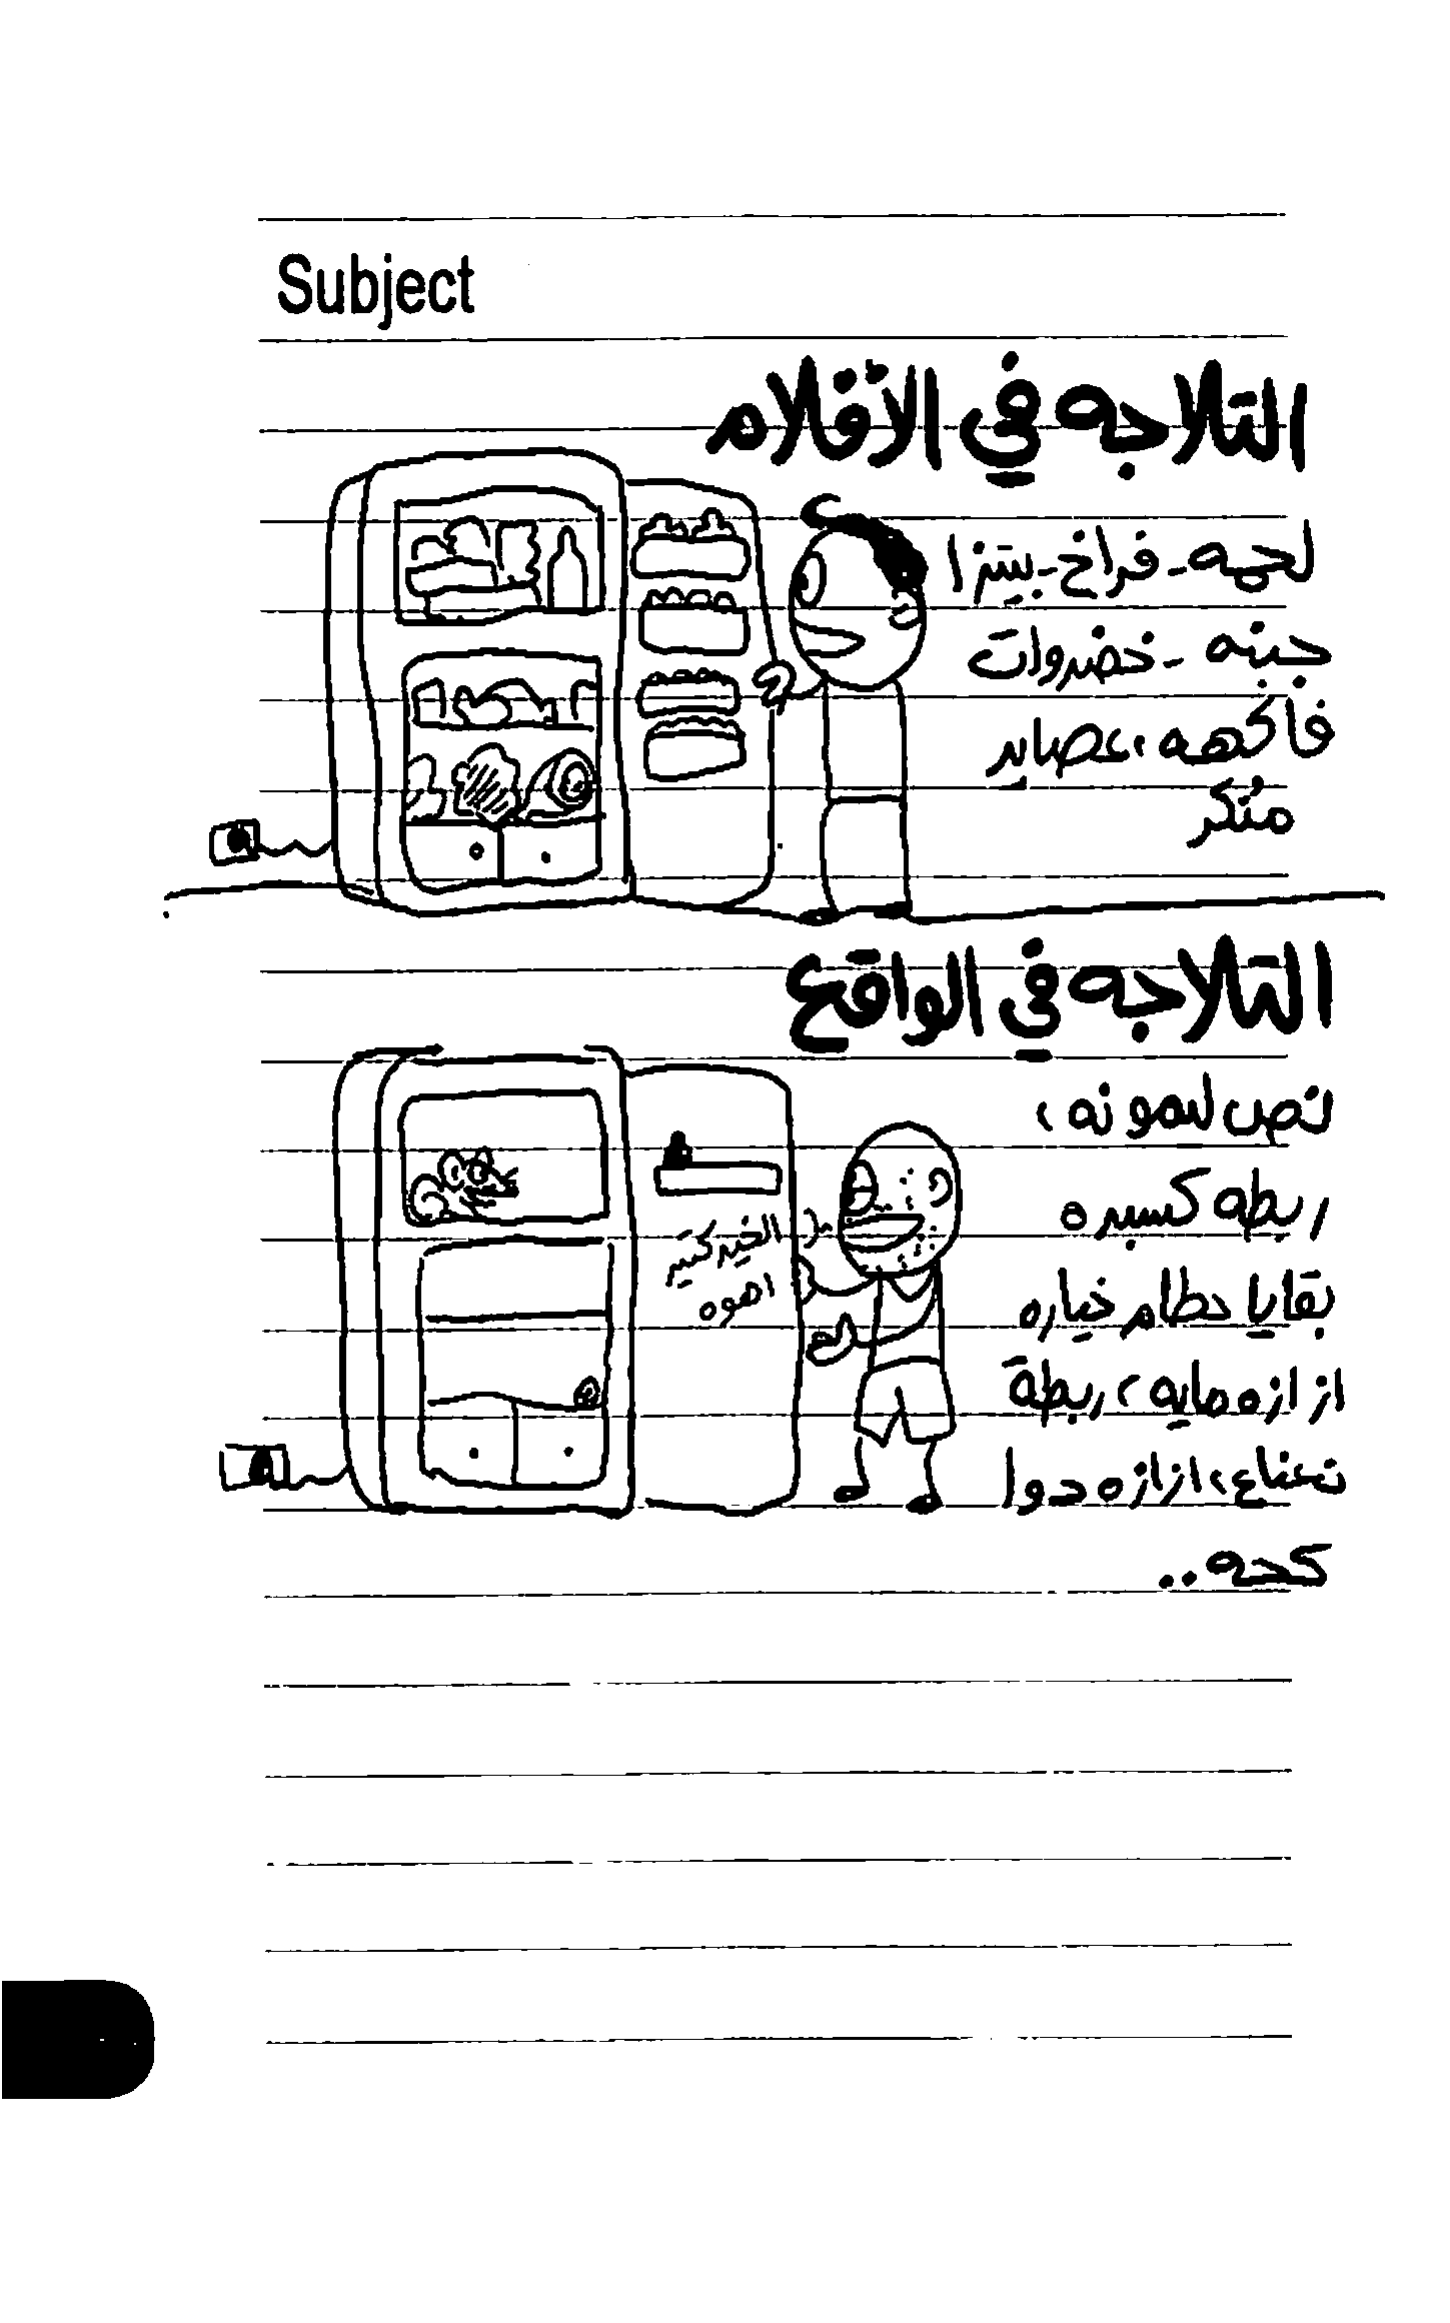 Subject
التلاجه في الأفلام
لحمه - فراخ - بيتزا
جبنه - خضروات
فاكهه، عصاير
مُنكر
التلاجه في الواقع
نص لمونه،
ربطه كسبره
بقايا حطام خياره
ازازه مايه، ربطة
نعناع، ازازه دوا
كحه..
الخير كتير
اهوه